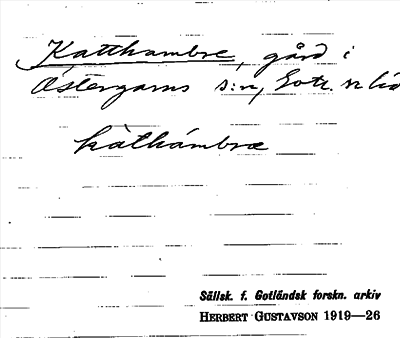 Katthambre, gård i
Östergarns s:n, Gotl.
kàthámbrœ
Sällsk. f. Gotländsk forskn. arkiv
HERBERT GUSTAVSON 1919—26